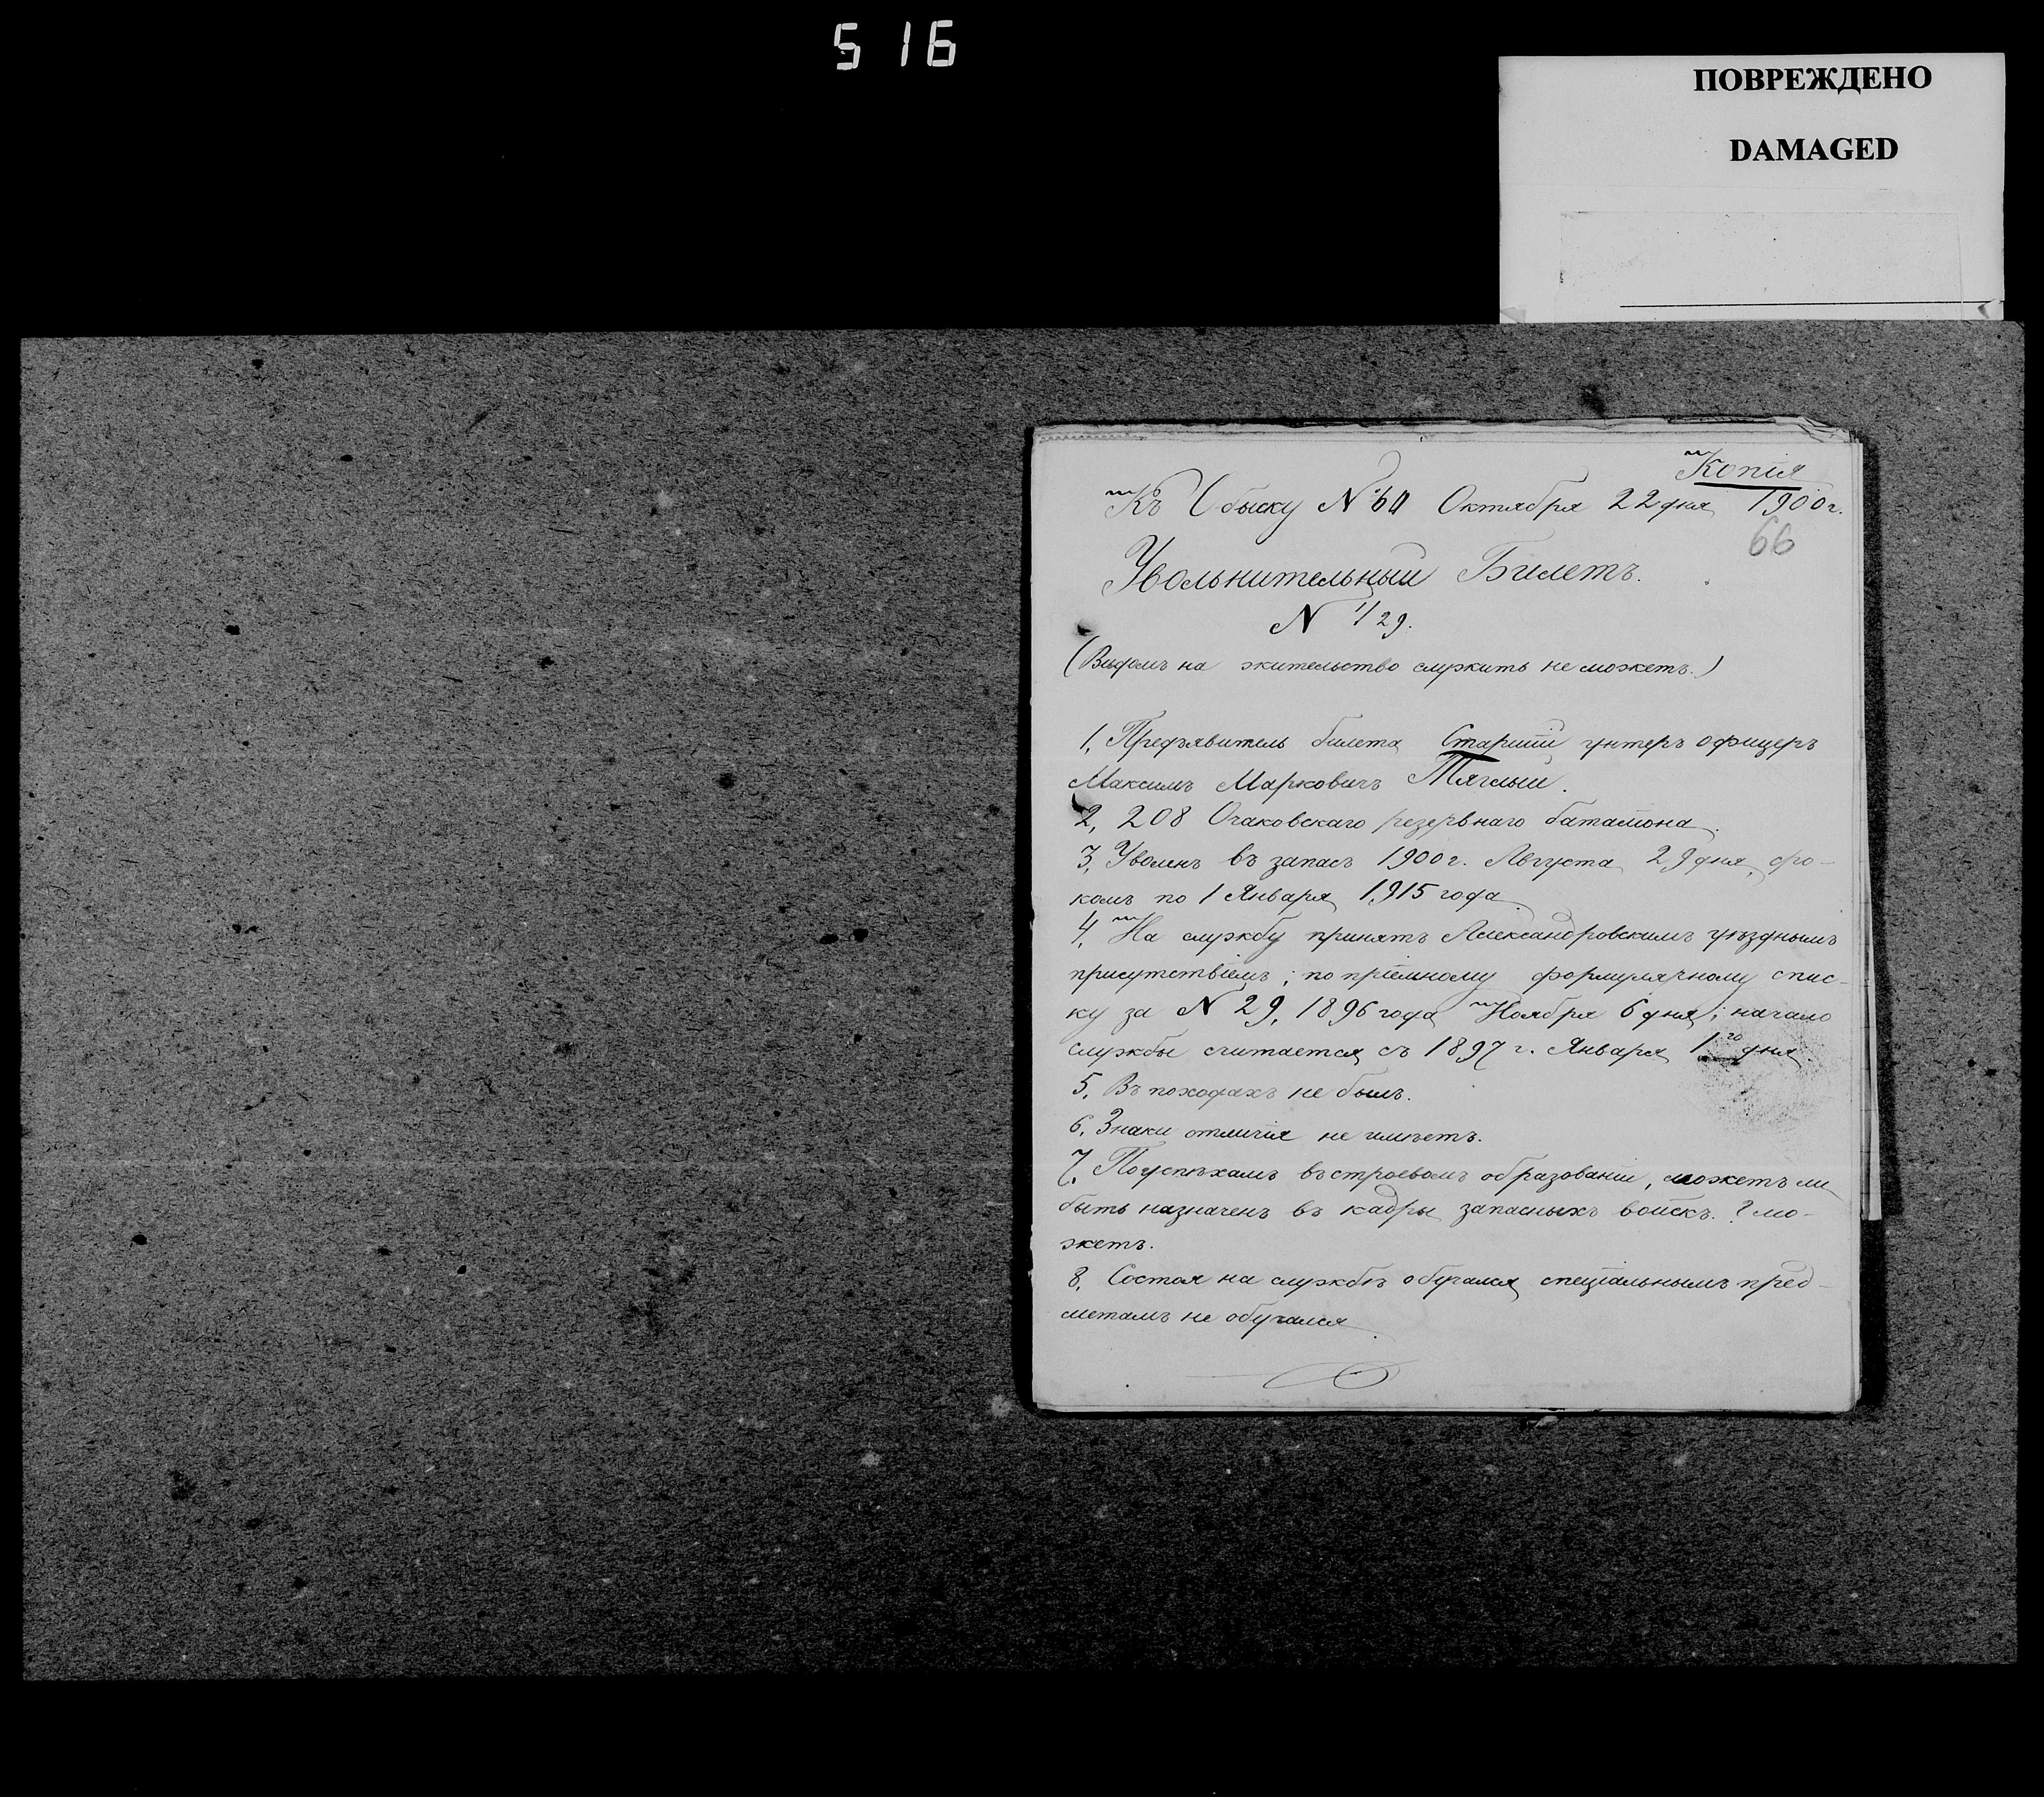 516
ПОВРЕЖДЕНО
DAMAGED
Копія
Къ Обыску № 60 Октября 22 дня 1900 г.
66
Увольнительный Билетъ.
N 1/29.
(Видомъ на жительство служить не можетъ.)
1, Предъявитель билета Старшій унтеръ офицеръ
Максимъ Марковичъ Тяглый.
2, 208 Очаковскаго резервнаго баталіона.
3, Уволенъ въ запасъ 1900 г. Августа 29 дня, сро-
комъ по 1 Января 1915 года.
4, На службу принятъ Александровскимъ уѣзднымъ
присутствіемъ; по пріемному формулярному спис-
ку за N 29, 1896 года Ноября 6 дня; начало
службы считается съ 1897 г. Января 1го дня.
5, Въ походахъ не былъ.
6, Знаки отличія не имѣетъ.
7, По успѣхамъ въ строевомъ образованіи, можетъ ли
быть назначенъ въ кадры запасныхъ войскъ.? мо-
жетъ.
8, Состоя на службѣ обучался спеціальнымъ пред-
метамъ не обучался.